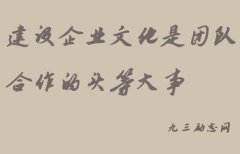 建设企业文化是团队
合作的头等大事
九三励志网